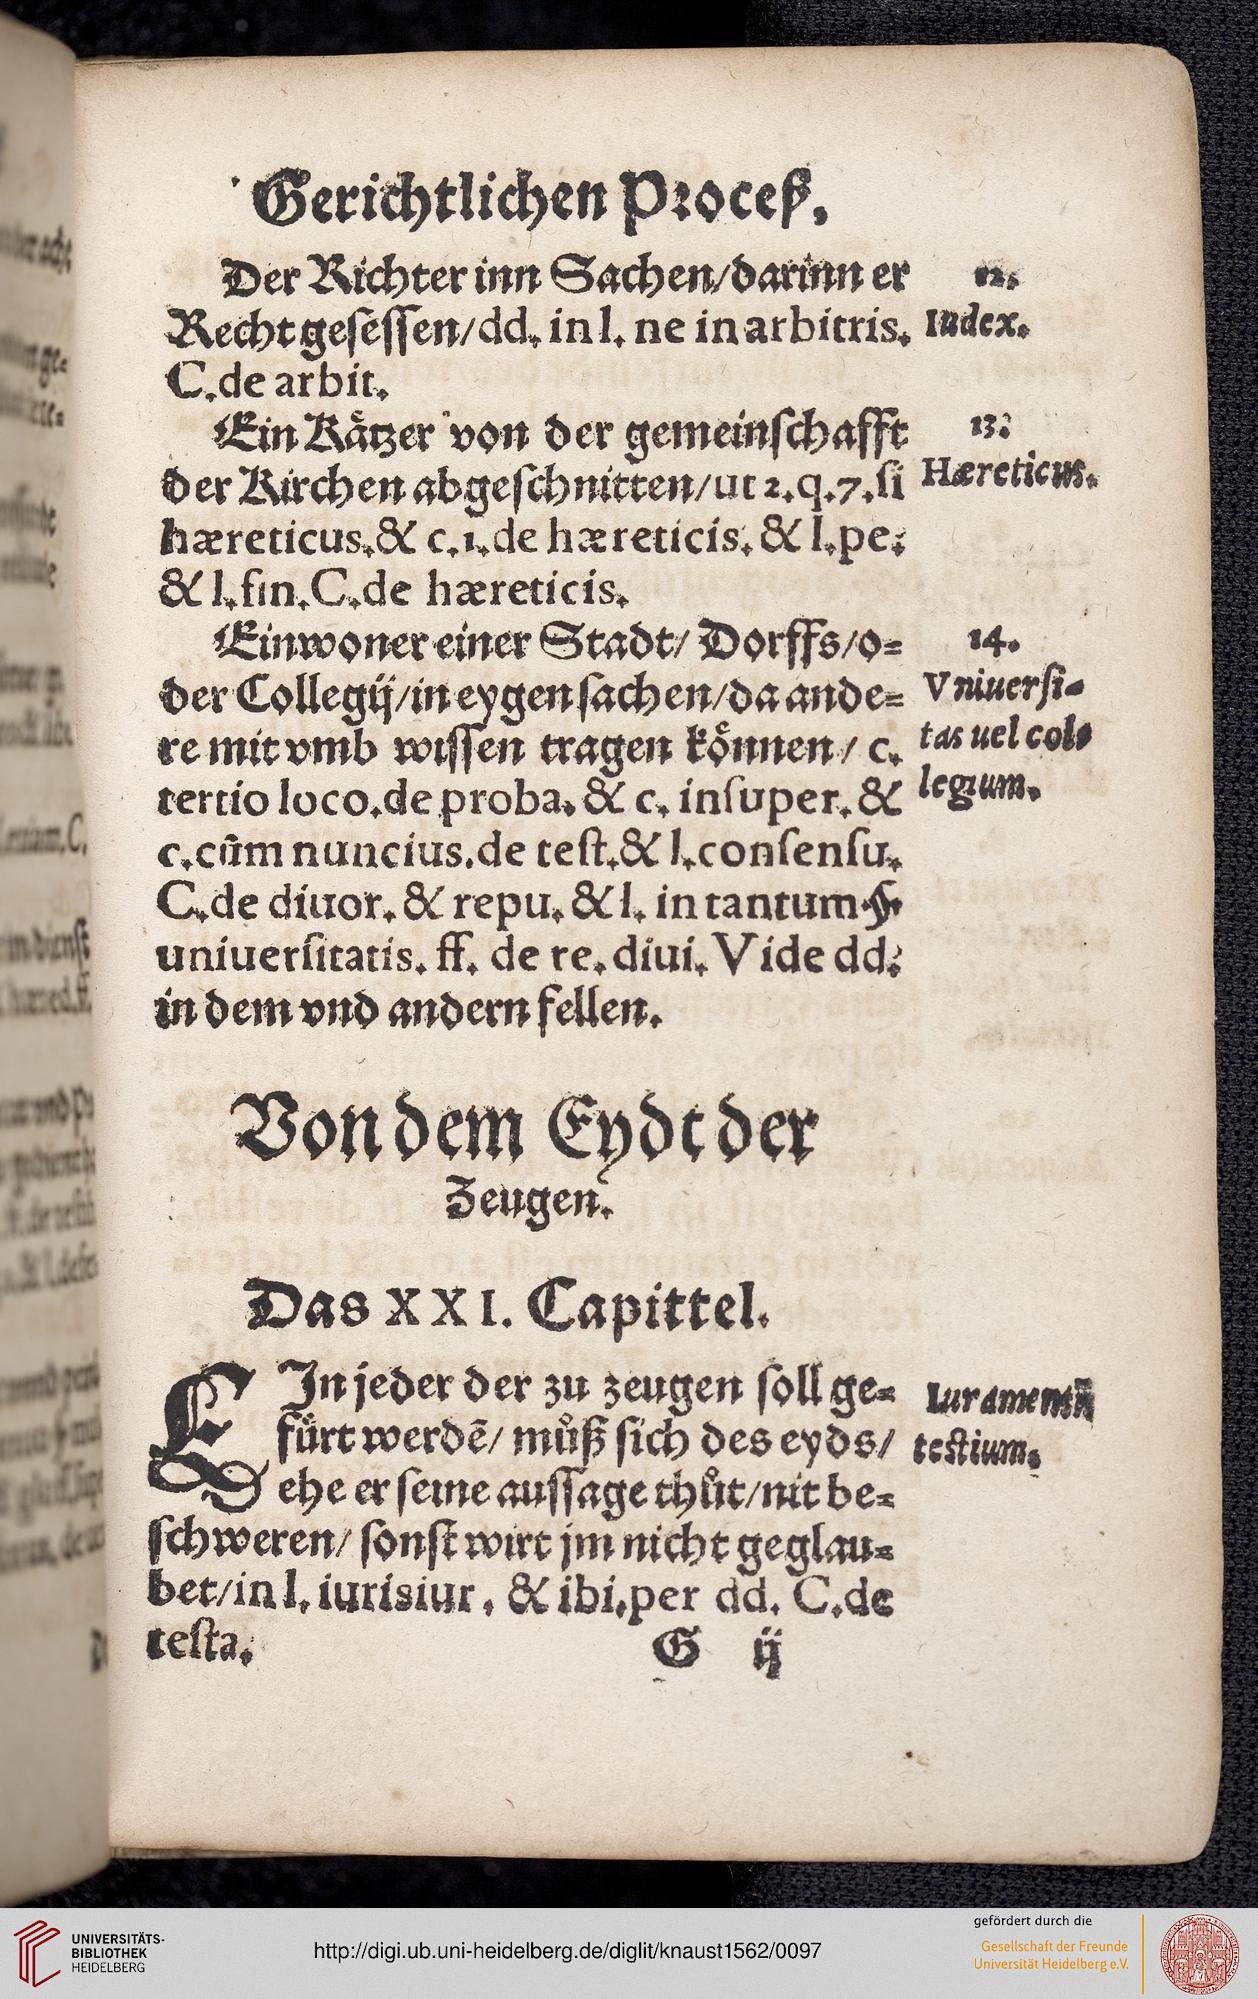 Gerichtlichen Proceß.
Der Richter inn Sachen/darinn er
12.
Recht gesessen/dd. in l. ne in arbitris.
Iudex.
C. de arbit.
Ein Kåtzer von der gemeinschafft
13.
der Kirchen abgeschnitten/ut 2.q.7.si
Hæreticus.
hæreticus.& c.1.de hæreticis. & l.pe.
& l.fin.C.de hæreticis.
Einwoner einer Stadt/ Dorffs/o=
14.
der Collegij/in eygen sachen/da ande=
Vniuersi-
re mit vmb wissen tragen kőnnen/ c.
tas uel col-
tertio loco.de proba. & c. insuper. &
legium.
c.cũm nuncius.de test.& l.consensu.
C.de diuor. & repu. & l. in tantum.§.
uniuersitatis. ff. de re.diui. Vide dd.
in dem vnd andern fellen.
Von dem Eydt der
Zeugen.
Das XXI. Capittel.
EIn jeder der zu zeugen soll ge=
Iuramentũ
fůrt werdē/ můß sich des eyds/
testium.
ehe er seine aussage thůt/nit be=
schweren/ sonst wirt jm nicht geglau=
bet/in l. iurisiur. & ibi.per dd. C.de
testa.
G ij
UNIVERSITÄTS-
BIBLIOTHEK
HEIDELBERG
http://digi.ub.uni-heidelberg.de/diglit/knaust1562/0097
gefördert durch die
Gesellschaft der Freunde
Universität Heidelberg e.V.